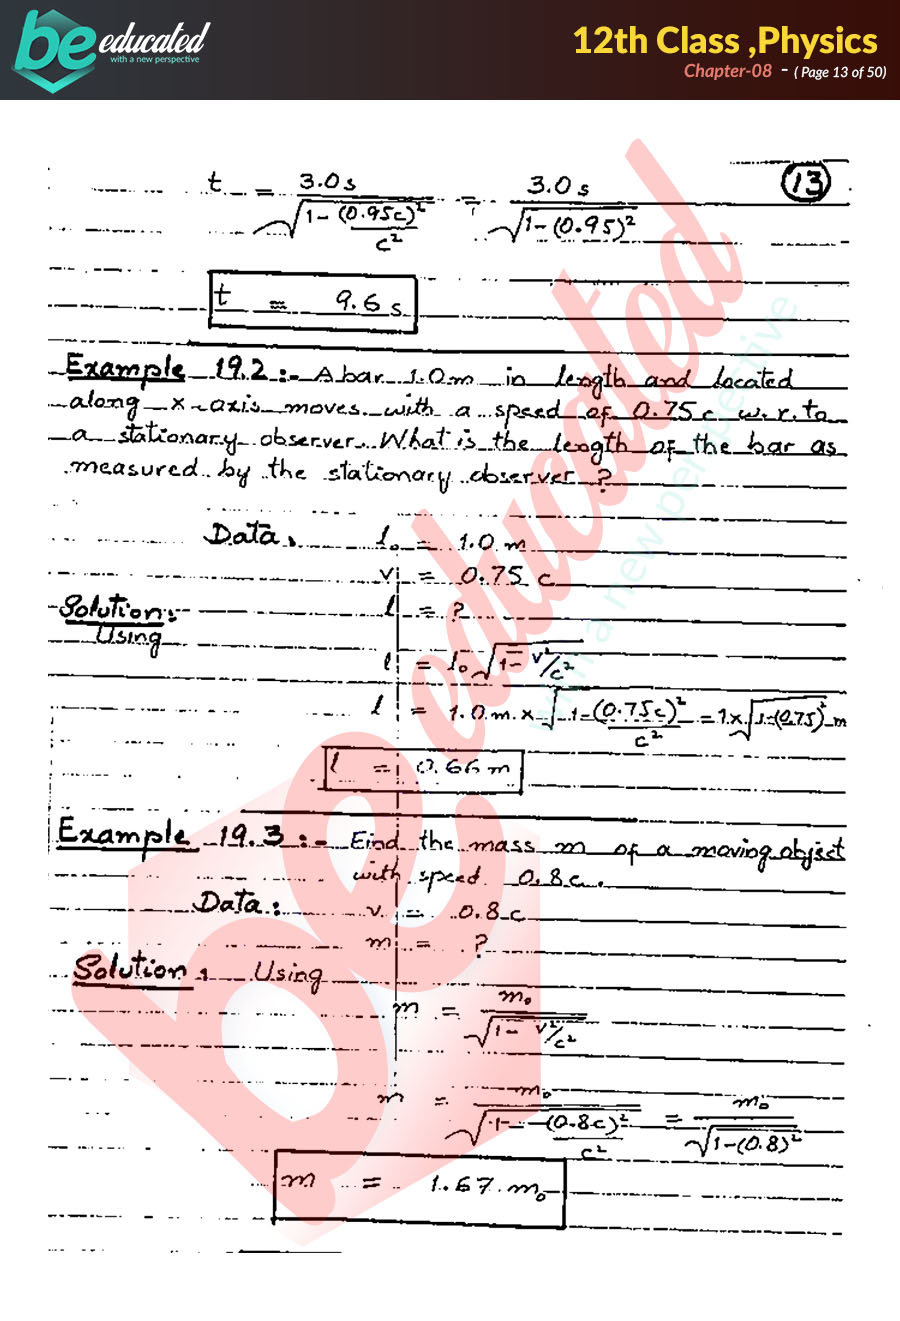 be educated
with a new perspective
12th Class ,Physics
Chapter-08 - ( Page 13 of 50)
13
t = 3.0s / √(1-(0.95c)²/c²) = 3.0s / √(1-(0.95)²)
t ≈ 9.6 s
Example 19.2:- A bar 1.0m in length and located
along x-axis moves with a speed of 0.75c w.r.to
a stationary observer. What is the length of the bar as
measured by the stationary observer ?
Data, l₀ = 1.0 m
v = 0.75 c
Solution: l = ?
Using
l = l₀ √(1- v²/c²)
l = 1.0 m x √(1-(0.75c)²/c²) = 1 x √(1-(0.75)²) m
l = 0.66 m
Example 19.3:- Find the mass m of a moving object
with speed 0.8c.
Data: v = 0.8 c
m = ?
Solution: Using
m = m₀ / √(1- v²/c²)
m = m₀ / √(1-(0.8c)²/c²) = m₀ / √(1-(0.8)²)
m = 1.67 m₀
be educated
with a new perspective